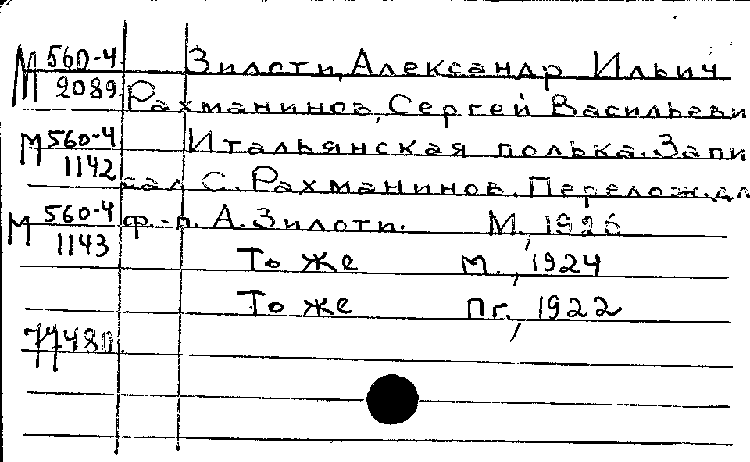 М 560-4 Зилоти, Александр Ильич
2089 Рахманинов, Сергей Васильеви
М 560-4 Итальянская полька. Запи
1142 сал С. Рахманинов. Перелож. дл
М 560-4 ф.-п. А. Зилоти. М., 1926
1143
То же М., 1924
То же Пг., 1922